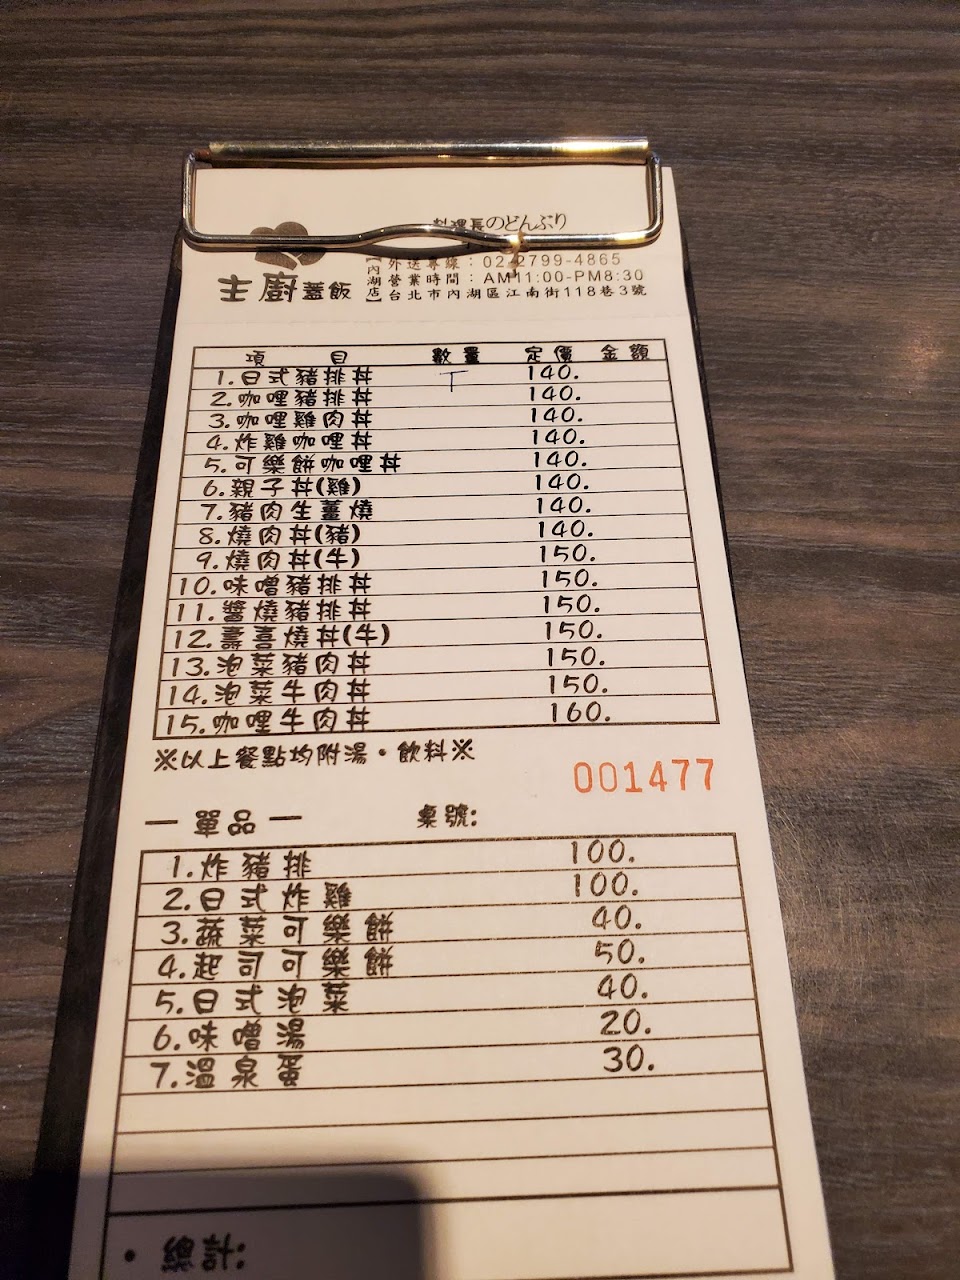 料理長のどんぶり
主廚蓋飯
【內湖店】
外送專線：02-2799-4865
營業時間：AM11:00-PM8:30
台北市內湖區江南街118巷3號
項 目 數量 定價 金額
1.日式豬排丼 T 140.
2.咖哩豬排丼 140.
3.咖哩雞肉丼 140.
4.炸雞咖哩丼 140.
5.可樂餅咖哩丼 140.
6.親子丼(雞) 140.
7.豬肉生薑燒 140.
8.燒肉丼(豬) 140.
9.燒肉丼(牛) 150.
10.味噌豬排丼 150.
11.醬燒豬排丼 150.
12.壽喜燒丼(牛) 150.
13.泡菜豬肉丼 150.
14.泡菜牛肉丼 150.
15.咖哩牛肉丼 160.
※以上餐點均附湯·飲料※
001477
— 單品 — 桌號:
1.炸豬排 100.
2.日式炸雞 100.
3.蔬菜可樂餅 40.
4.起司可樂餅 50.
5.日式泡菜 40.
6.味噌湯 20.
7.溫泉蛋 30.
• 總計: